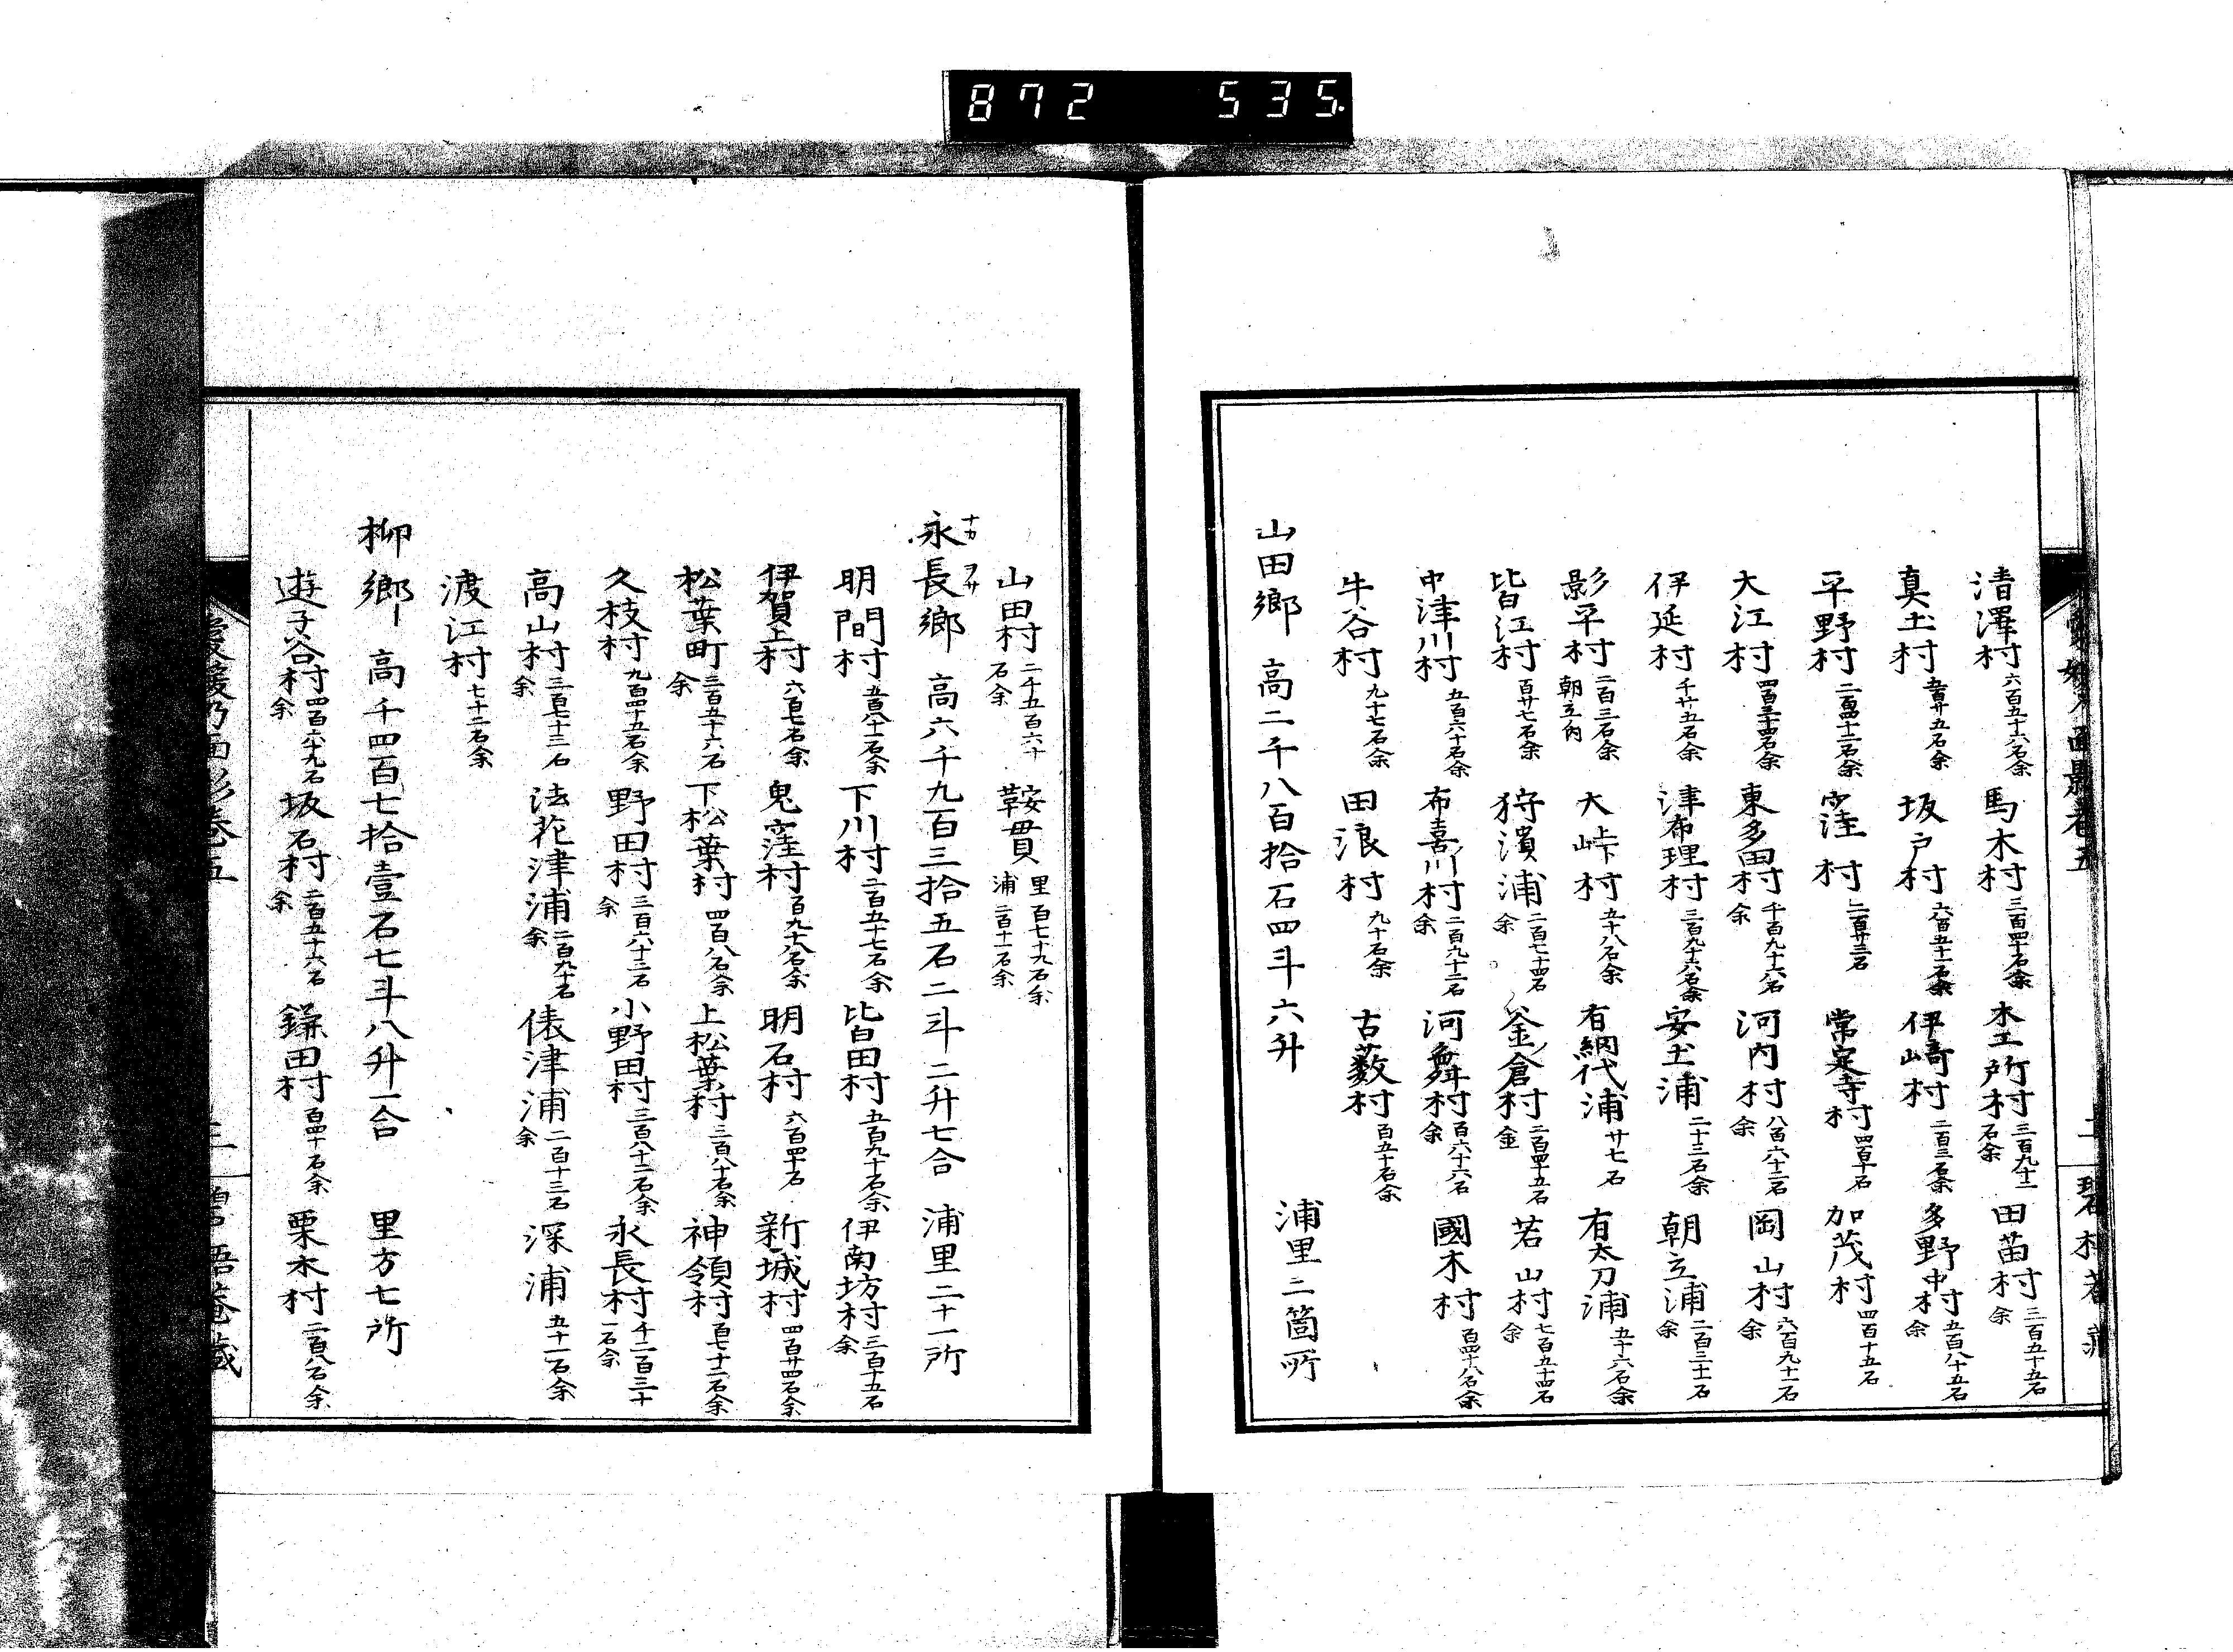 872 535.
清澤村 六百五十六石余 馬木村 三百四十石余 木生所村 三百九十二石余 田苗村 三百五十五石余
真土村 五百廿五石余 坂戸村 六百五十一石余 伊崎村 二百三石余 多野中村 五百八十五石余
平野村 二百四十二石余 窪村 二百廿三石 常定寺村 四百十石 加茂村 四百十五石
大江村 四百三十四石余 東多田村 千百九十六石余 河内村 八百六十二石余 岡山村 六百九十一石余
伊延村 千廿五石余 津布理村 三百九十六石余 安土浦 二十三石余 朝立浦 二百三十一石余
影平村 二百三石余 朝立内 大峠村 五十八石余 有網代浦 廿七石 有太刀浦 五十六石余
皆江村 百廿七石余 狩濱浦 二百七十四石余 釜倉村 二百四十五石余 若山村 七百五十四石余
中津川村 五百六十石余 布喜川村 二百九十二石余 河舞村 百六十六石余 國木村 百四十八石余
牛谷村 九十七石余 田浪村 九十石余 古薮村 百五十石余
山田郷 高二千八百拾石四斗六升 浦里二箇所
山田村 二千五百六十石余 鞍貫 里百七十九石余 浦二百十一石余
永長郷 ナカヲサ 高六千九百三拾五石二斗二升七合 浦里二十一所
明間村 五百八十一石余 下川村 二百五十七石余 皆田村 五百九十石余 伊南坊村 三百十五石余
伊賀上村 六百七石余 鬼窪村 百九十八石余 明石村 六百四十石 新城村 四百廿四石余
松葉町 三百五十六石余 下松葉村 四百八石余 上松葉村 三百八十石余 神領村 百七十二石余
久枝村 九百四十五石余 野田村 三百六十二石余 小野田村 三百八十二石余 永長村 千二百三十一石余
高山村 三百七十三石余 法花津浦 二百九十石余 俵津浦 二百十三石余 深浦 五十一石余
渡江村 七十二石余
柳郷 高千四百七拾壹石七斗八升一合 里方七所
遊子谷村 四百六十九石余 坂石村 二百五十六石余 鎌田村 百四十石余 栗木村 二百八石余